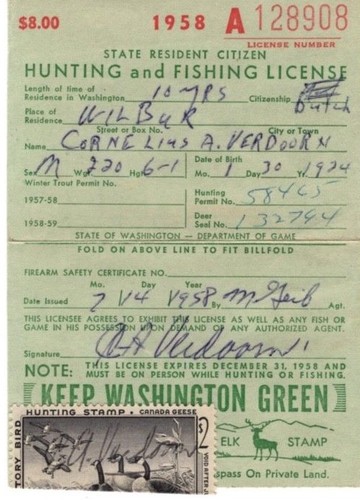 $8.00 1958 A 128908
LICENSE NUMBER
STATE RESIDENT CITIZEN
HUNTING and FISHING LICENSE
Length of time of
Residence in Washington 10 YRS Citizenship Dutch
Place of
Residence WILBUR
Street or Box No. City or Town
Name CORNELIUS A. VERDOORN
Sex M Wgt 220 Hgt 6-1 Date of Birth Mo. 1 30 1924
Winter Trout Permit No.
1957-58
Hunting
Permit No. 58465
1958-59
Deer
Seal No. 132794
STATE OF WASHINGTON — DEPARTMENT OF GAME
FOLD ON ABOVE LINE TO FIT BILLFOLD
FIREARM SAFETY CERTIFICATE NO.
Mo. Day Year
Date Issued 7 14 1958 By Agt.
THIS LICENSEE AGREES TO EXHIBIT THIS LICENSE AS WELL AS ANY FISH OR
GAME IN HIS POSSESSION UPON DEMAND OF ANY AUTHORIZED AGENT.
Signature Verdoorn
NOTE: THIS LICENSE EXPIRES DECEMBER 31, 1958 AND
MUST BE ON PERSON WHILE HUNTING OR FISHING.
KEEP WASHINGTON GREEN
TORY BIRD HUNTING STAMP CANADA GEESE
Verdoorn
$2
ELK STAMP
spass On Private Land.